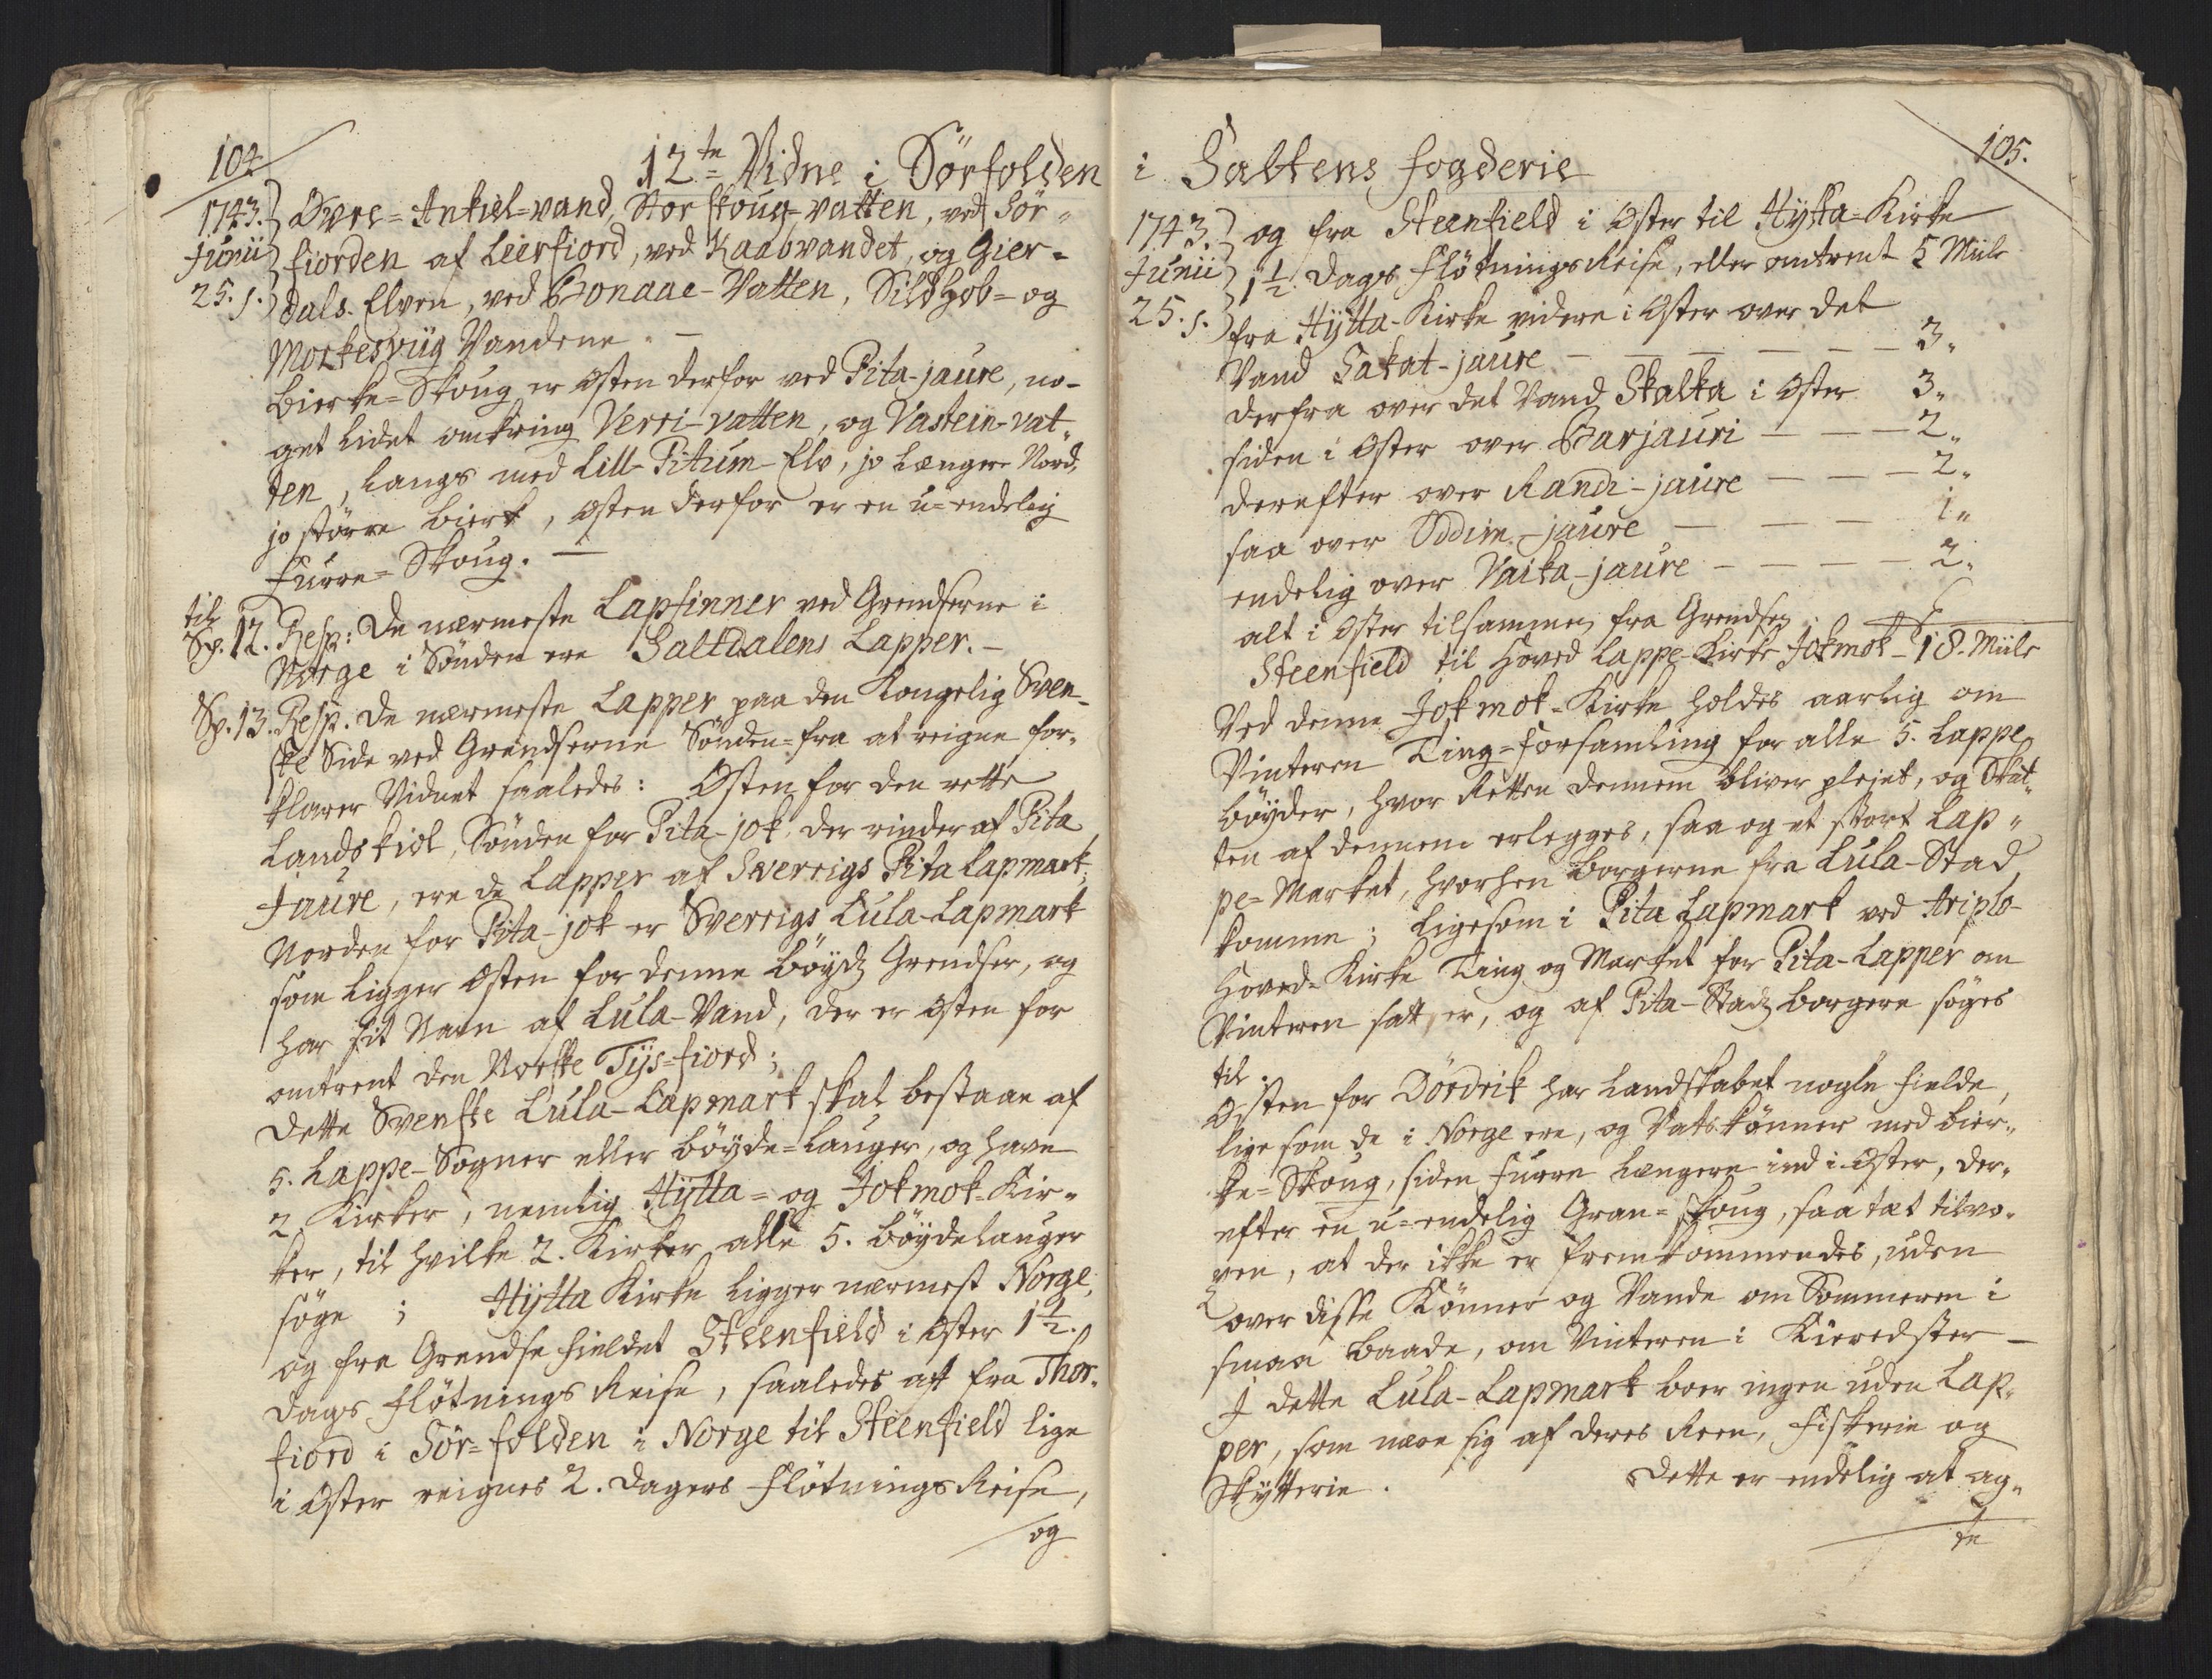 104
12te Vidne i Sørfolden
1743.
Junii
25. s.
Øvre=Ankiel=vand, Stor skoug-vatten, ved Sør-
fiorden af Leerfiord, ved Kaabvandet, og Gier=
dals-Elven, ved Bonaae-Vatten, Sildhob= og
Morkesviig Vandene. —
Bierke=Skoug er Østen derfor ved Pita-jaure, no-
get lidet omkring Verri-vatten, og Vastein-vat-
ten, langs med Lill-Pitum-Elv, jo længere Nord,
jo større Bierk, Østen derfor er en u=endelig
Furre=Skoug. —
til
Sp. 12. Resp: De nærmeste Lapfinner ved Grendserne i
Norge i Sønden ere Saltdalens Lapper. —
Sp. 13. Resp. De nærmeste Lapper paa den Kongelig Sven-
ske Side ved Grendserne Sønden=fra at reigne for-
klarer Vidnet saaledes: Østen for den rette
Landskiøl, Sønden for Pita-jok, der rinder af Pita
Jaure, ere de Lapper af Sverrigs Pita Lapmark,
Norden for Pita-jok er Sverrigs Lula-Lapmark
som ligger Østen for denne Bøyds Grendser, og
har sit Navn af Lula-Vand, der er Østen for
omtrent den Norske Tÿs=fiord;
Dette Svenske Lula-Lapmark skal bestaae af
5. Lappe-Sogner eller Bøyde=Lauger, og have
2 Kirker, nemlig Hÿtta= og Jokmok-Kir-
ker, til hvilke 2. Kirker alle 5. Bøydelauger
søge; Hÿtta Kirke ligger nærmest Norge,
og fra Grendse fieldet Steenfield i Øster 1 1/2.
Dags Fløtnings Reise, saaledes att fra Thor-
fiord i Sør=folden i Norge til Steenfield lige
i Øster reignes 2. Dagers Fløtnings Reise,
og
105.
i Saltens fogderie
1743.
Junii
25. s.
og fra Steenfield i Øster til Hÿtta=Kirke
1 1/2 Dags Fløtnings Reise, eller omtrent 5 Miile
fra Hÿtta-Kirke videre i Øster over det
Vand Sakat-jaure — — — — — 3„
derfra over det Vand Skalka i Øster 3„
siden i Øster over Parjauri — — — 2„
derefter over Randi-jaure — — — 2„
saa over Oddim-jaure — — — 1„
endelig over Vaika-jaure — — — — 2„
alt i Øster tilsammen fra Grendsen
Steenfield til Hoved Lappe-Kirke Jokmok - 18. Miile
Ved denne Jokmok-Kirke holdes aarlig om
Vinteren Ting=Forsamling for alle 5. Lappe
bøyder, hvor Retten dennem bliver plejet, og Skat-
ten af dennem erlegges, saa og et stort Lap-
pe=Market, hvorhen Borgerne fra Lula-Stad
komme; ligesom i Pita Lapmark ved Ariplo-
Hoved=Kirke Ting og Market for Pita-Lapper om
Vinteren satt er, og af Pita-Stads borgere søges
til.
Østen for Dørdrik har Landskabet nogle Fielde,
lige som de i Norge ere, og Vatskønner med Bier-
ke=Skoug, siden Furre længere ind i Øster, der-
efter en u=endelig Gran=skoug, saa tæt tilvo-
ren, at der ikke er fremkommendes, uden
over disse Kønner og Vande om Sommeren i
smaa Baade, om Vinteren i Kieredster —
I dette Lula-Lapmark boer ingen uden Lap-
per, som nære sig af deres Reen, Fiskerie og
Skÿtterie. Dette er endelig at ag-
te